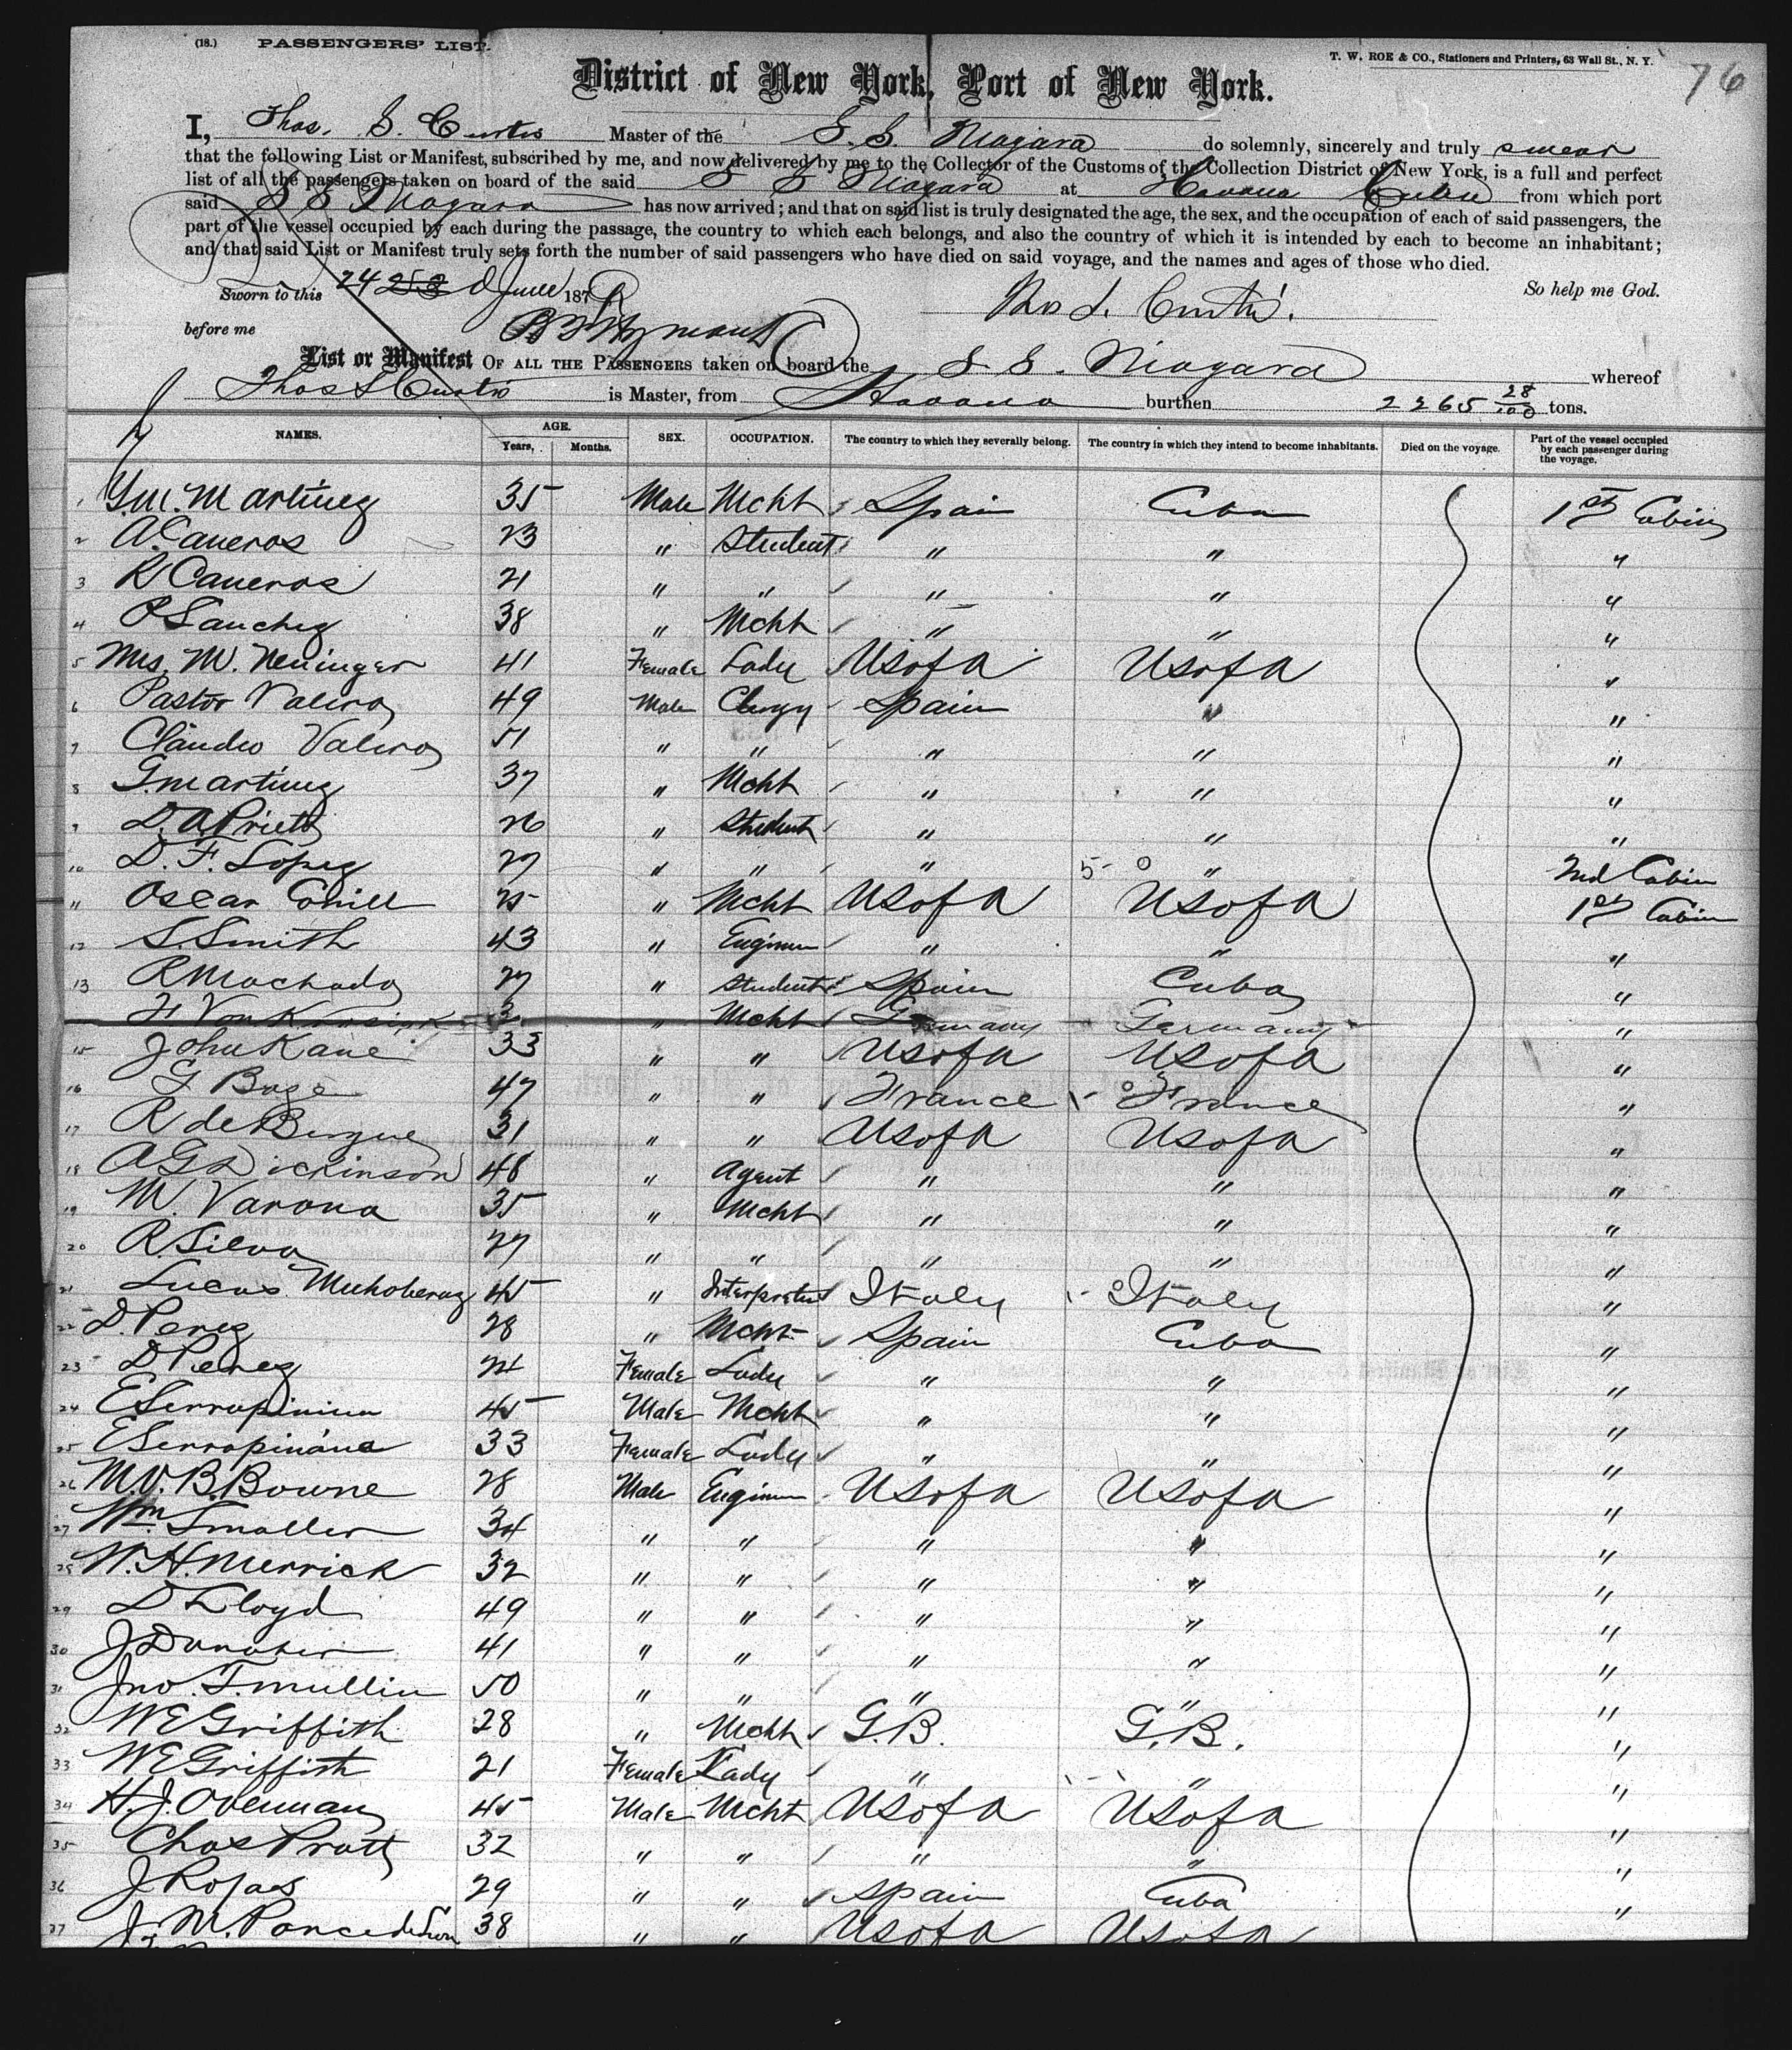 (18.) PASSENGERS' LIST.
T. W. ROE & CO., Stationers and Printers, 63 Wall St., N. Y.
76
District of New York, Port of New York.
I, Thos. S. Curtis Master of the S.S. Niagara do solemnly, sincerely and truly swear
that the following List or Manifest, subscribed by me, and now delivered by me to the Collector of the Customs of the Collection District of New York, is a full and perfect
list of all the passengers taken on board of the said S S Niagara at Havana Cuba from which port
said S S Niagara has now arrived; and that on said list is truly designated the age, the sex, and the occupation of each of said passengers, the
part of the vessel occupied by each during the passage, the country to which each belongs, and also the country of which it is intended by each to become an inhabitant;
and that said List or Manifest truly sets forth the number of said passengers who have died on said voyage, and the names and ages of those who died.
Sworn to this 24 June 187 So help me God.
before me Thos S. Curtis.
List or Manifest OF ALL THE PASSENGERS taken on board the S. S. Niagara whereof
Thos S Curtis is Master, from Havana burthen 2265 28/100 tons.
NAMES. AGE. Years. Months. SEX. OCCUPATION. The country to which they severally belong. The country in which they intend to become inhabitants. Died on the voyage. Part of the vessel occupied by each passenger during the voyage.
1 Y.M. Martinez 35 Male Mcht Spain Cuba 1st Cabin
2 A. Caneros 23 " Student " " "
3 R Caneros 21 " " " " "
4 P Sanchez 38 " Mcht " " "
5 Mrs. M. Neninger 41 Female Lady USofA USofA "
6 Pastor Valero 49 Male Clergy Spain " "
7 Claudio Valero 51 " " " " "
8 G. Martinez 37 " Mcht " " "
9 D. A. Prieto 26 " Student " " "
10 D. F. Lopez 27 " " " " 2nd Cabin
11 Oscar 25 " Mcht USofA USofA 1st Cabin
12 S. Smith 43 " Engineer " " "
13 R Machado 27 " Student Spain Cuba "
" Mcht Germany Germany "
15 John Kane 33 " " USofA USofA "
16 47 " " France France "
17 R de Bergue 31 " " USofA USofA "
18 A G Dickinson 48 " Agent " " "
19 M. Varona 35 " Mcht " " "
20 R. Silva 27 " " " " "
21 Lucas 45 " Interpreter Italy Italy "
22 D. Perez 28 " Mcht Spain Cuba "
23 D Perez 24 Female Lady " " "
24 45 Male Mcht " " "
25 E Serrapinana 33 Female Lady " " "
26 M.V.B. Bowne 28 Male Engineer USofA USofA "
27 Wm. Smaller 34 " " " " "
28 W. H. Merrick 32 " " " " "
29 D Lloyd 49 " " " " "
30 J Donaher 41 " " " " "
31 Jno. T. Mullin 50 " " " " "
32 W E Griffith 28 " Mcht G.B. G.B. "
33 W E Griffith 21 Female Lady " " "
34 H. J. Overman 45 Male Mcht USofA USofA "
35 Chas Pratt 32 " " " " "
36 J Rojas 29 " " Spain Cuba "
37 J. M. Ponce de Leon 38 " " USofA USofA